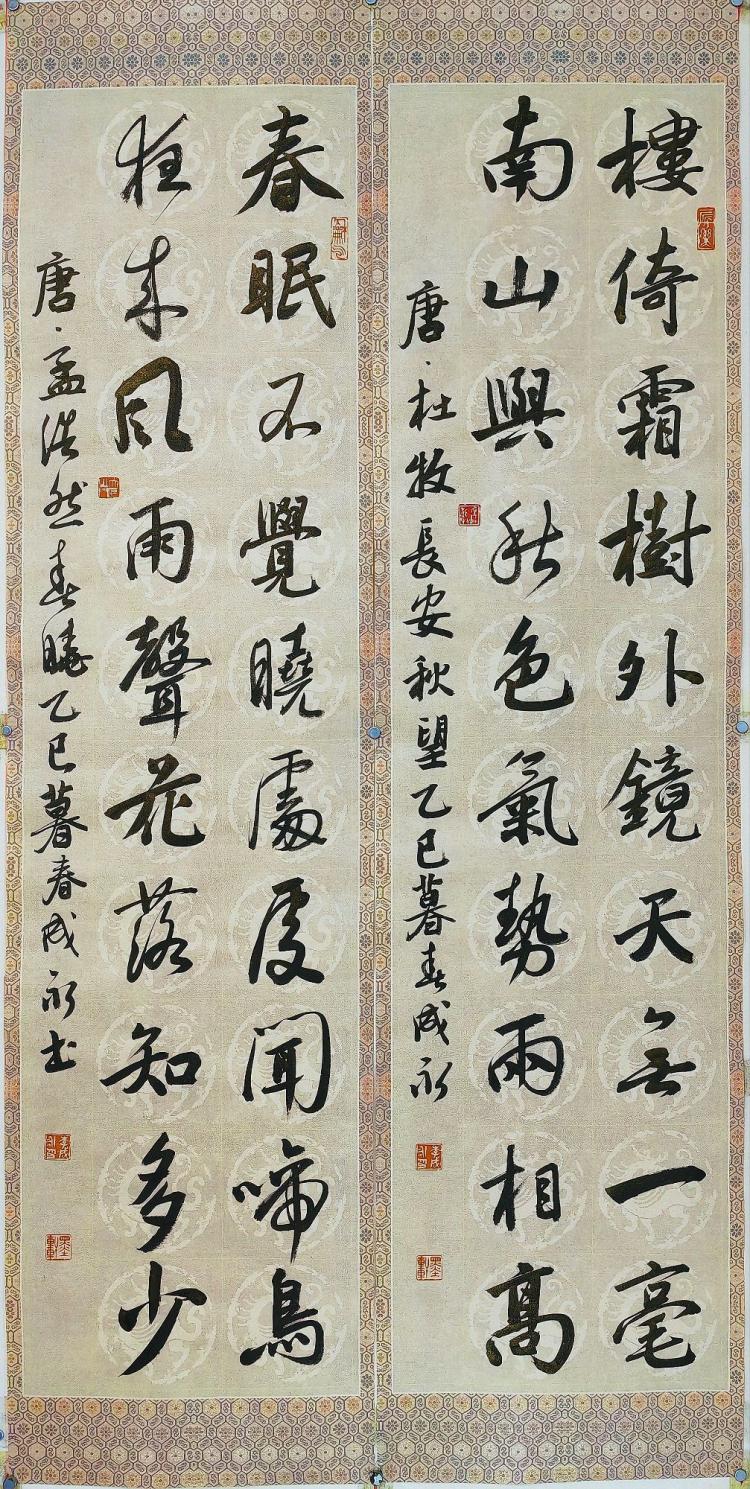 樓倚霜樹外鏡天無一毫
南山與秋色氣勢兩相高
唐·杜牧長安秋望乙巳暮春成永
春眠不覺曉處處聞啼鳥
夜來风雨聲花落知多少
唐·孟浩然春曉乙巳暮春成永書